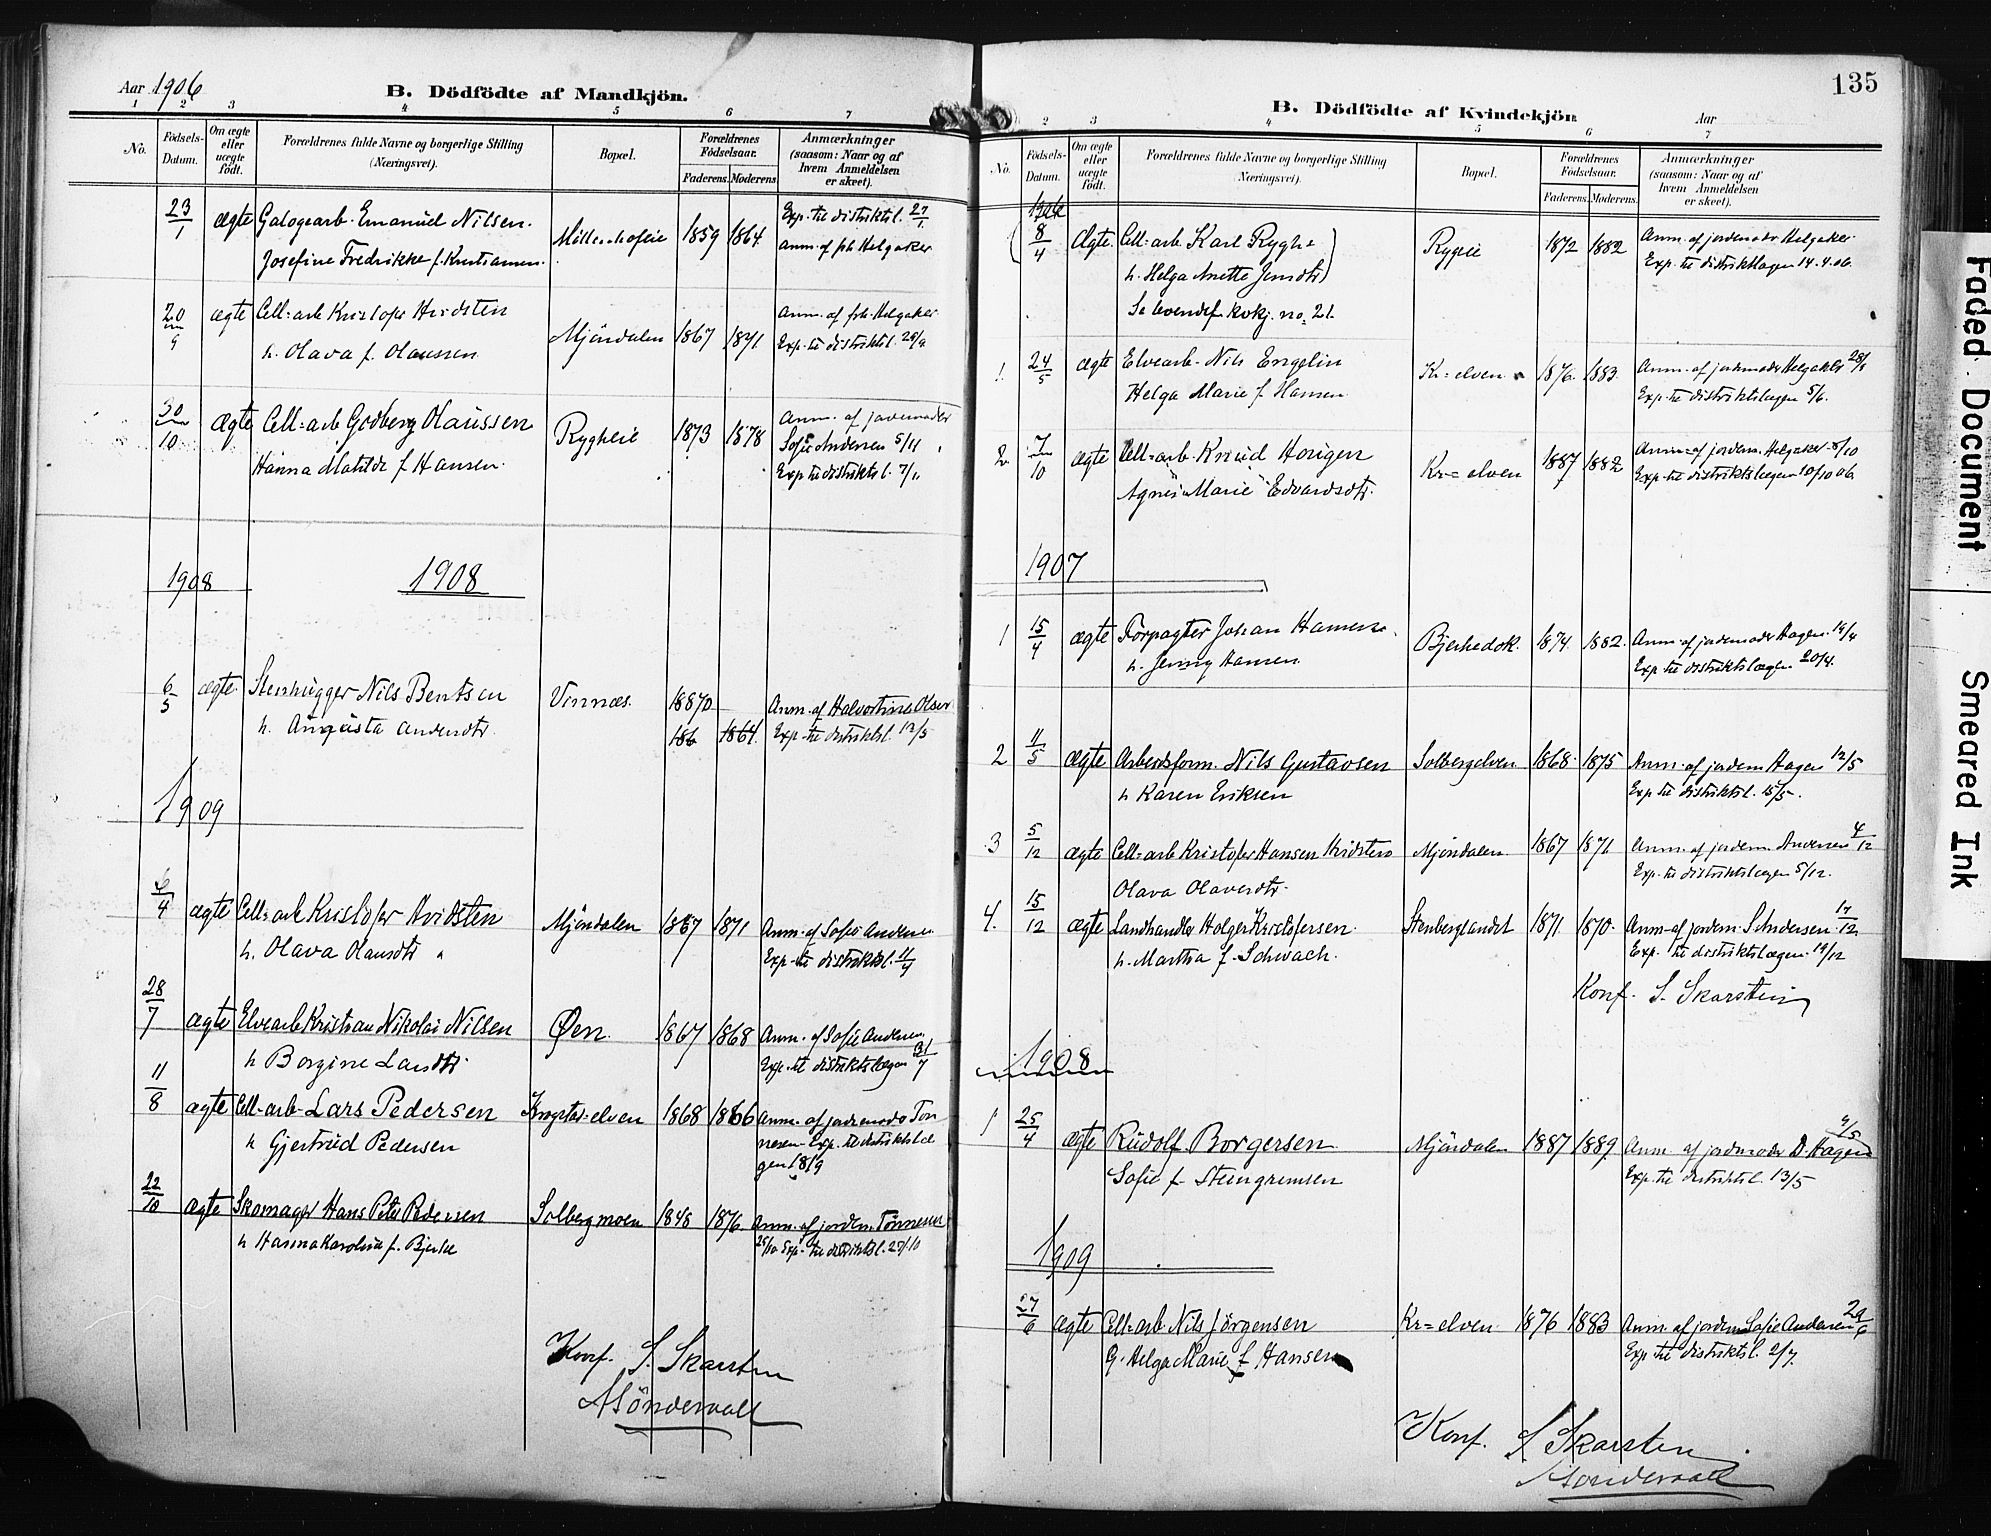 Aar 1906
B. Dödfödte af Mandkjön.
1 2 3 4 5 6 7
No.
Födsels-Datum.
Om ægte eller uægte födt.
Forældrenes fulde Navne og borgerlige Stilling (Næringsvei).
Bopæl.
Forældrenes Födselsaar.
Faderens. Moderens.
Anmærkninger (saasom: Naar og af hvem Anmeldelsen er skeet).
23/1 ægte Galogearb. Emanuel Nilsen. 1859 1864 Exp. til distriktsl. 27/1.
Josefine Fredrikke f. Kristiansen. anm. af frk Helgaker
20/9 ægte Cell=arb Kristofer Hvidsten Mjöndalen 1867 1871 Anm. af frk Helgaker
h. Olava f. Olaussen Exp. til distriktsl.
30/10 Ægte Cell=arb Godberg Olaussen Rygheie 1873 1878 Anm. af jordemoder
Hanna Matilde f Hansen. Sofie Andersen 5/11
Exp til distriktsl. 7/11
1908 1908
6/5 ægte. Stenhugger Nils Bentsen Vinnæs. 1870 Anm. af Halvortine Olsen
h. Augusta Andersdtr. 186 1864. Exp. til distriktsl. 12/5
1909
6/4 ægte Cell=arb Kristofer Hvidsten Mjöndalen 1867 1871 Anm. af Sofie Andersen
h. Olava Olausdtr Exp. til distriktsl. 11/4
28/7 ægte Elvearb Kristian Nikolai Nilsen Øen. 1867 1868 Anm. af Sofie Andersen
h Borgine Larsdtr. Exp. til distriktslægen 31/7
11/8 ægte Cell-arb Lars Pedersen Krogstad=elven 1868 1866 Anm. af jordemoder Tön
h Gjertrud Pedersen nesen Exp. til distriktslæ
gen 18/9
22/10 ægte Skomager Hans Peter Pedersen Solbergmoen 1848 1876. Anm. af jordem. Tönnesen
h Hanna Karoline f. Bjerke 25/10 Exp. til distriktsl. 27/10
Konf. S. Skarstein
ASöndervall
135
B. Dödfödte af Kvindekjön
Aar
2 3 4 5 6 7
No.
Födsels-Datum.
Om ægte eller uægte födt.
Forældrenes fulde Navne og borgerlige Stilling Næringsvei).
Bopæl.
Forældrenes Födselsaar.
Faderens. Moderens.
Anmærkninger (saasom: Naar og af hvem Anmeldelsen er skeet).
1906
(8/4 Ægte. Cell=arb Karl Ryghe Rygeie 1872 1882 Anm. af jordemodr Helgaker
h. Helga Anette Jensdtr) Exp. til distriktslægen 14.4.06.
Se levendef. kvkj. no. 21
1. 24/5 ægte Elvearb. Nils Engelin Kr=elven 1876. 1883. Anm. af jordemodr Helgaker 28/5
Helga Marie f Hansen Exp. til distriktslægen 5/6.
2 7/10 ægte Cell=arb. Knud Horigen Kr=elven 1887 1882 Anm=af jordem. Helgaker 8/10
Agnes Marie Edvardsdtr. Exp. til distriktslægen 10/10 06
1907
1 15/4 ægte Forpagter Johan Hansen Bjerkedok. 1874. 1882. Anm. af jordemoder Hagen. 19/4
h. Jenny Hansen Exp. til distriktslægen 20/4.
2 11/5 ægte Arbeidsform. Nils Gustavsen Solbergelven 1868. 1875 Anm. af jordem Hagen 12/5
h Karen Eriksen Exp. til distriktsl. 15/5.
3 5/12 ægte Cell=arb Kristofer Hansen Hvidsten Mjöndalen. 1867 1871 Anm. af jordem. Andersen 4/12
Olava Olavesdtr. Exp. til distriktslægen 5/12.
4. 15/12 ægte Landhandler Holger Kristofersen. Stenberglandet 1871. 1870. Anm-af jordem. S. Andersen 17/12
h. Martha f. Schwach. Exp. til distriktslægen 19/12
Konf. S. Skarstein
1908
1 25/4 ægte Rudolf Borgersen Mjöndalen 1887 1889 Anm af jordmoder D. Hagen
Sofie f. Steingrimsen Exp. til distriktsl. 13/5
1909
27/6 ægte Cell=arb Nils Jörgensen Kr=elven. 1876 1883 Anm. af jordem Sofie Andersen 29/6
G. Helga Marie f Hansen Exp til distriktsl. 2/7.
Konf. S Skarstein
ASöndervall
Faded Document
Smeared Ink